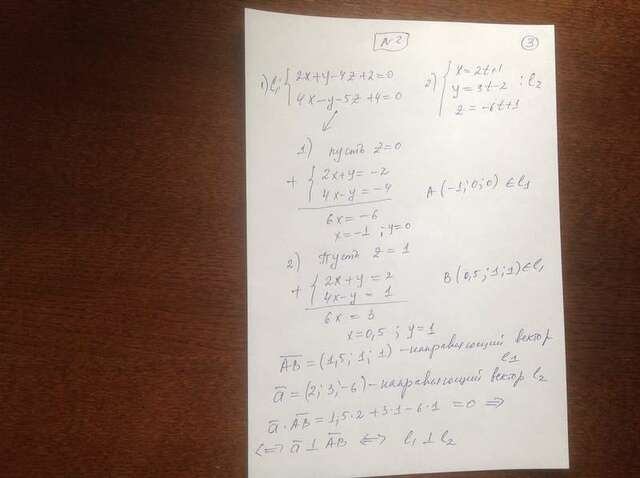 N2
3
1) l₁: { 2x+y-4z+2=0
4x-y-5z+4=0
2) { x=2t+1
y=3t-2 : l₂
z=-6t+1
1) пусть z=0
+ { 2x+y=-2
4x-y=-4
6x=-6
x=-1 ; y=0
A(-1;0;0) ∈ l₁
2) Пусть z=1
+ { 2x+y=2
4x-y=1
6x=3
x=0,5 ; y=1
B(0,5;1;1) ∈ l₁
AB=(1,5;1;1) - направляющий вектор l1
a=(2;3;-6) - направляющий вектор l₂
a·AB=1,5·2+3·1-6·1=0 ⇒
⇔ a⊥AB ⇔ l₁⊥l₂